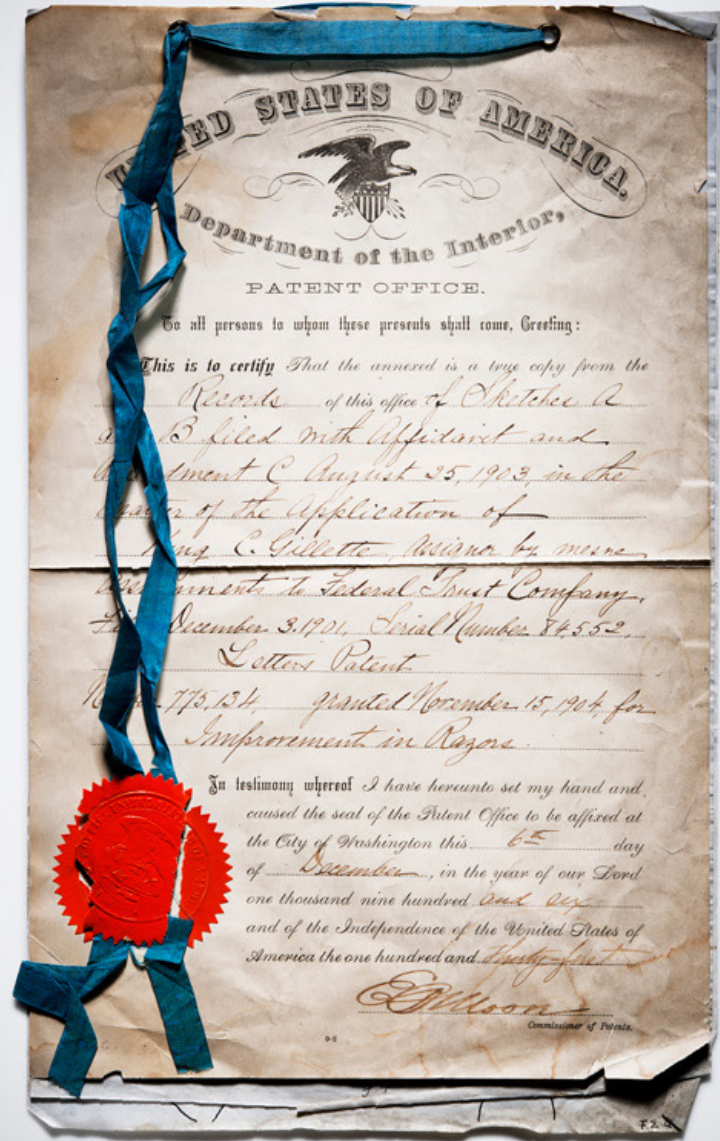 UNITED STATES OF AMERICA.
Department of the Interior,
PATENT OFFICE.
To all persons to whom these presents shall come, Greeting:
This is to certify That the annexed is a true copy from the
Records of this office of Sketches A
B filed with Affidavit and
Amendment C August 25, 1903, in the
matter of the Application of
King C. Gillette, assignor by mesne
assignments to Federal Trust Company,
December 3, 1901, Serial Number 84,552,
Letters Patent
775,134, granted November 15, 1904, for
Improvement in Razors.
In testimony whereof I have hereunto set my hand and
caused the seal of the Patent Office to be affixed at
the City of Washington this 6th day
of December, in the year of our Lord
one thousand nine hundred and six
and of the Independence of the United States of
America the one hundred and thirty-first
Commissioner of Patents.